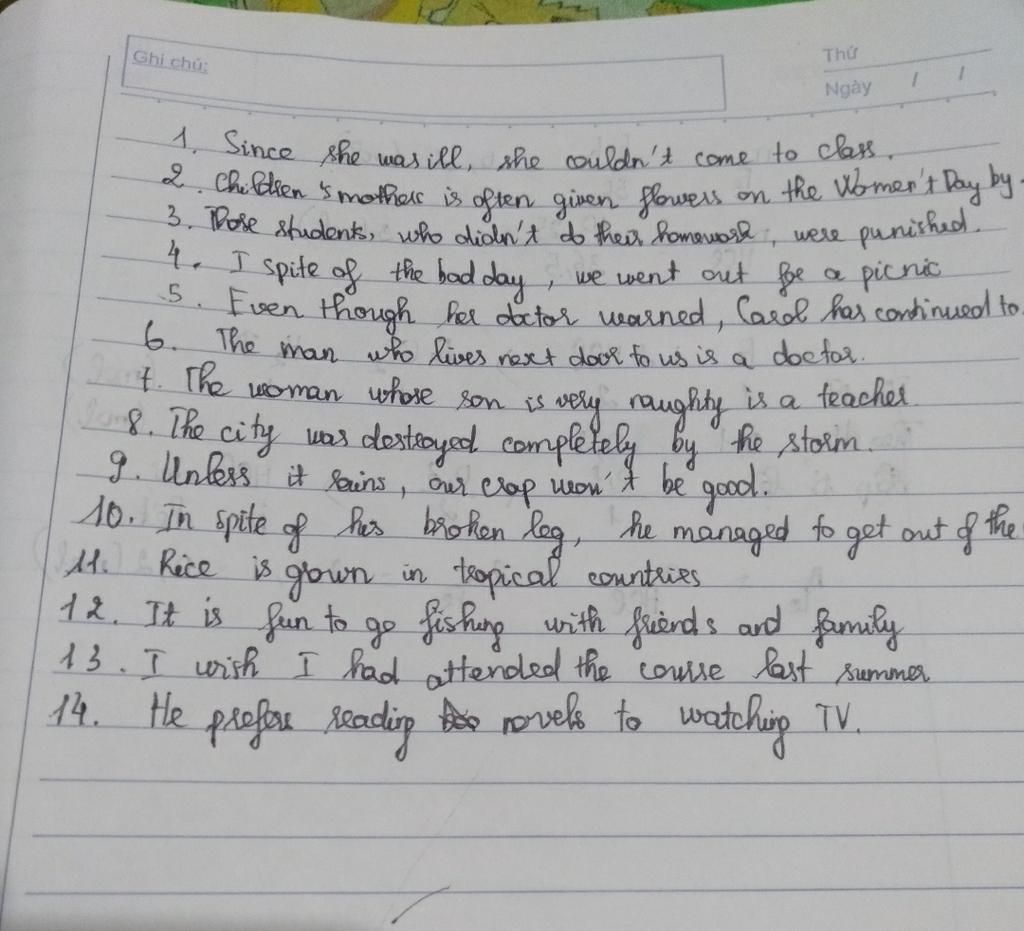 Ghi chú:
Thứ
Ngày / /
1. Since she was ill, she couldn't come to class.
2. Children's mothers is often given flowers on the Women't Day by
3. Those students, who didn't do their homework, were punished.
4. I spite of the bad day, we went out for a picnic
5. Even though her doctor warned, Carol has continued to
6. The man who lives next door to us is a doctor.
7. The woman whose son is very naughty is a teacher
8. The city was destroyed completely by the storm.
9. Unless it rains, our crop won't be good.
10. In spite of his broken leg, he managed to get out of the
11. Rice is grown in tropical countries
12. It is fun to go fishing with friends and family
13. I wish I had attended the course last summer
14. He prefers reading novels to watching TV.